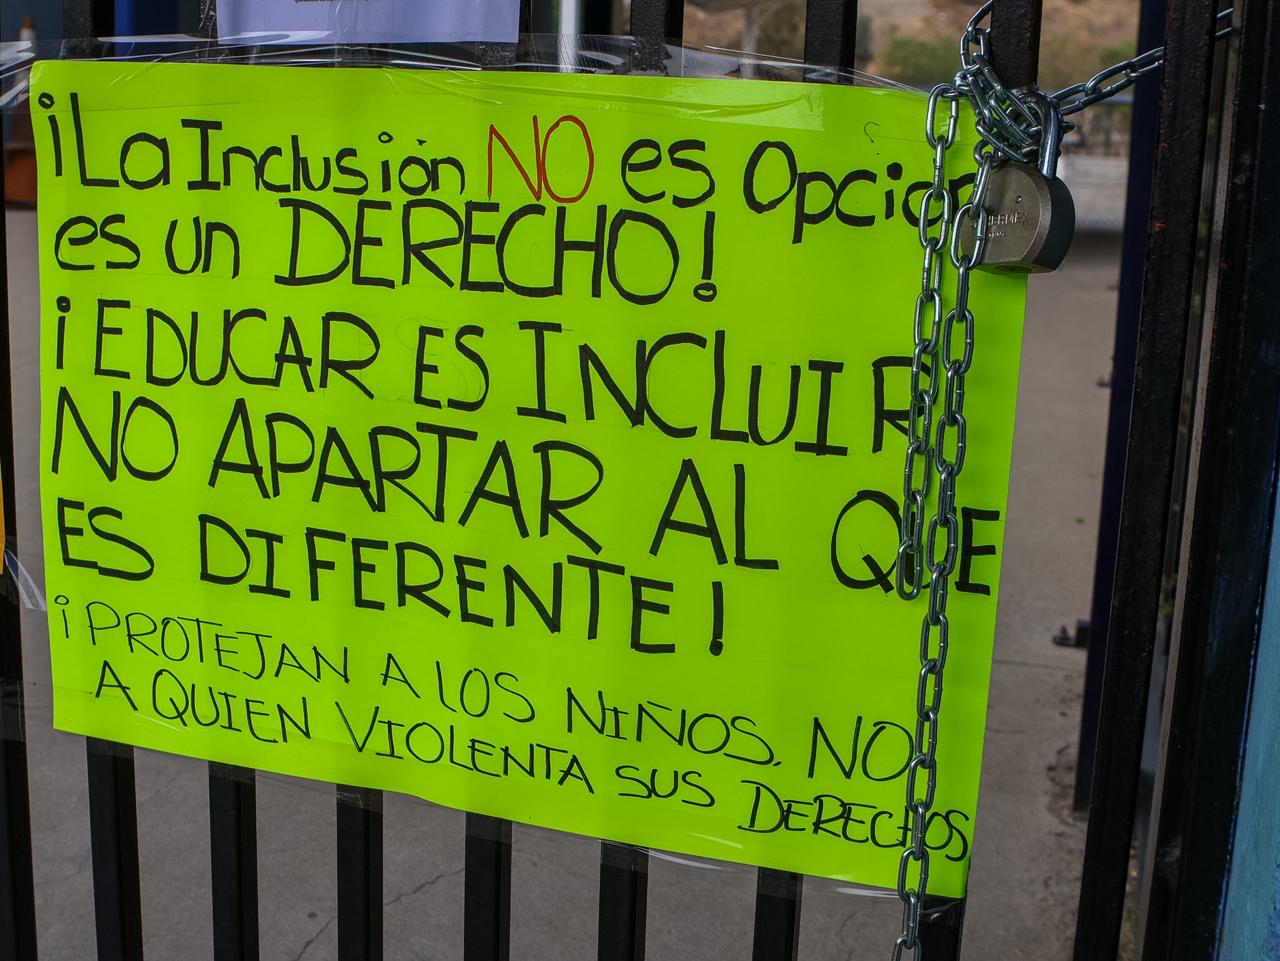 ¡La Inclusión NO es Opción
es un DERECHO!
¡EDUCAR ES INCLUIR
NO APARTAR AL QUE
ES DIFERENTE!
¡PROTEJAN A LOS NIÑOS, NO
A QUIEN VIOLENTA SUS DERECHOS